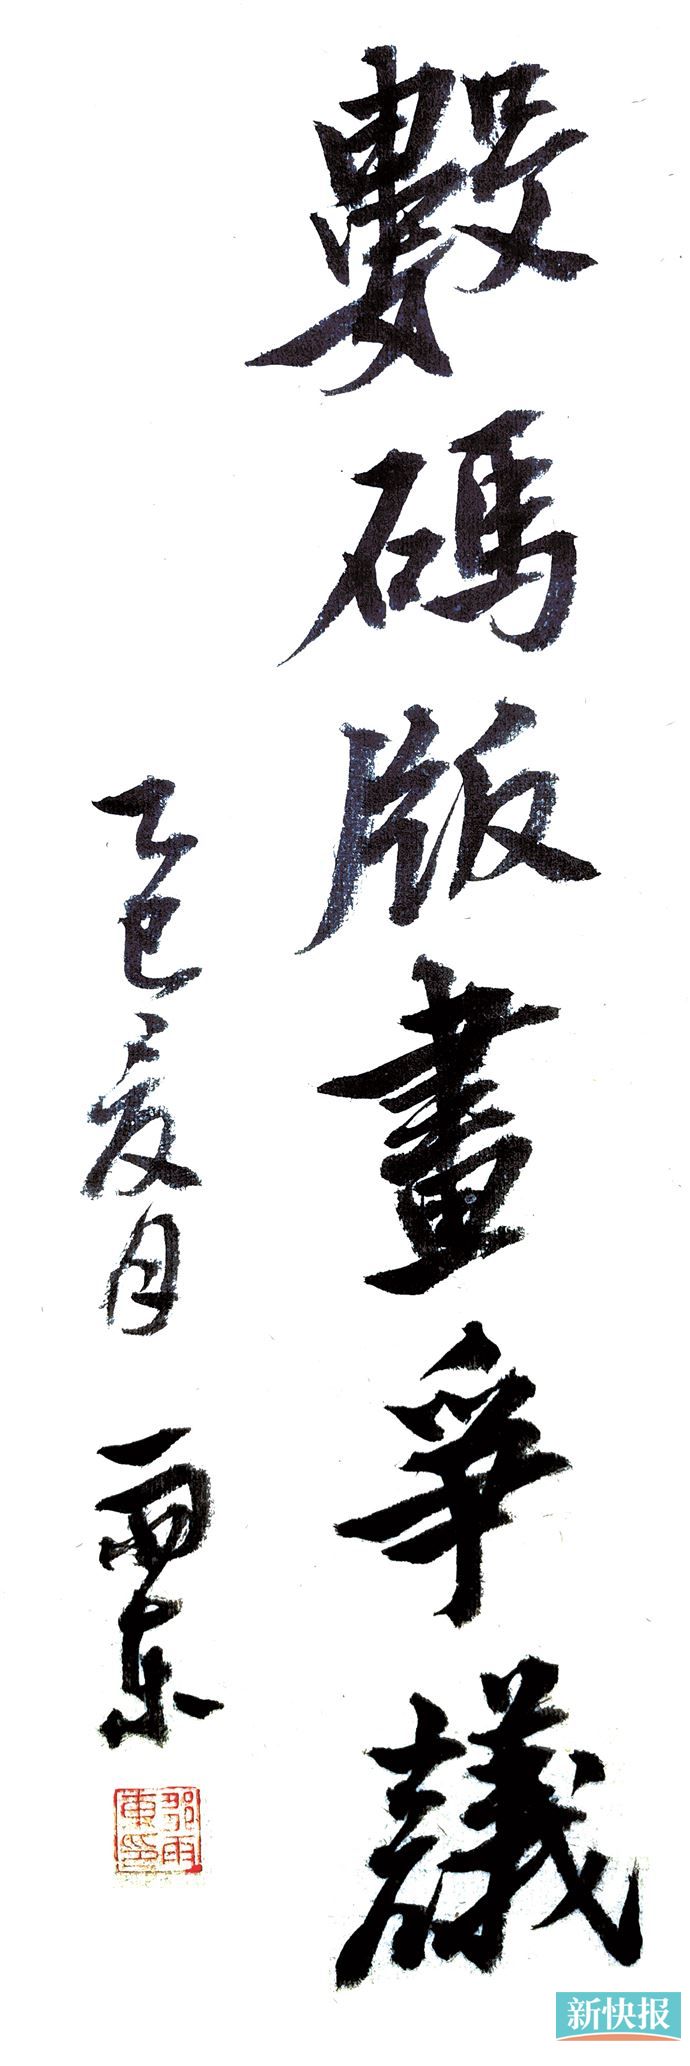 數碼版畫爭議
乙巳亥月 雨东
雨東印
新快报